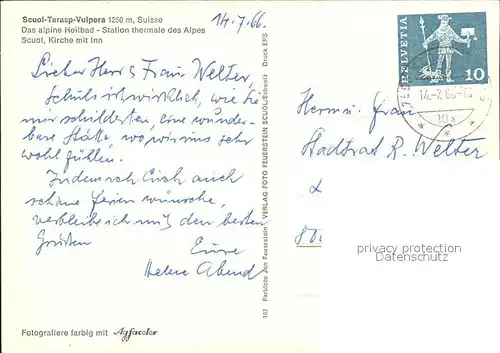 Scuol-Tarasp-Vulpera 1250 m, Suisse
Das alpine Heilbad - Station thermale des Alpes
Scuol, Kirche mit Inn
14.7.66.
Lieber Herr & Frau Welter,
Schuls ich wirklich, wie Sie
mir schilderten eine wunder-
bare Stätte wo wir uns sehr
wohl fühlen.
Indem ich Euch auch
schöne Ferien wünsche,
verbleibe ich mit den besten
Grüssen
Eure
Helen Abend
Fotografiere farbig mit Agfacolor
107 Farbfoto Jon Feuerstein VERLAG FOTO FEUERSTEIN SCUOL/Schweiz Druck EPS
HELVETIA
10
14.-7.66-
10a
Herrn u. Frau
Stadtrat R. Welter
privacy protection
Datenschutz